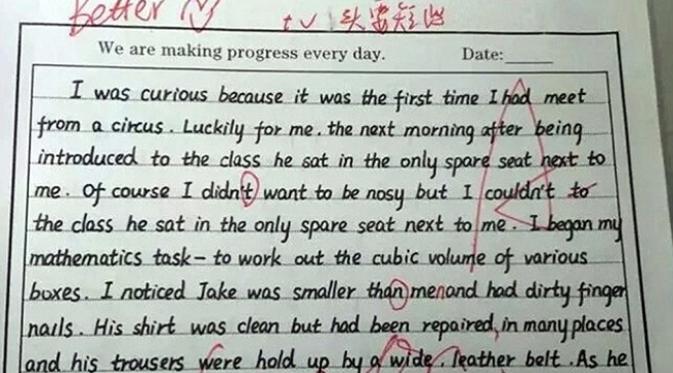 Better
We are making progress every day. Date:
I was curious because it was the first time I had meet
from a circus. Luckily for me. the next morning after being
introduced to the class he sat in the only spare seat next to
me. Of course I didn't want to be nosy but I couldn't to
the class he sat in the only spare seat next to me. I began my
mathematics task- to work out the cubic volume of various
boxes. I noticed Jake was smaller than menand had dirty finger
nails. His shirt was clean but had been repaired, in many places
and his trousers were hold up by a wide, leather belt. As he